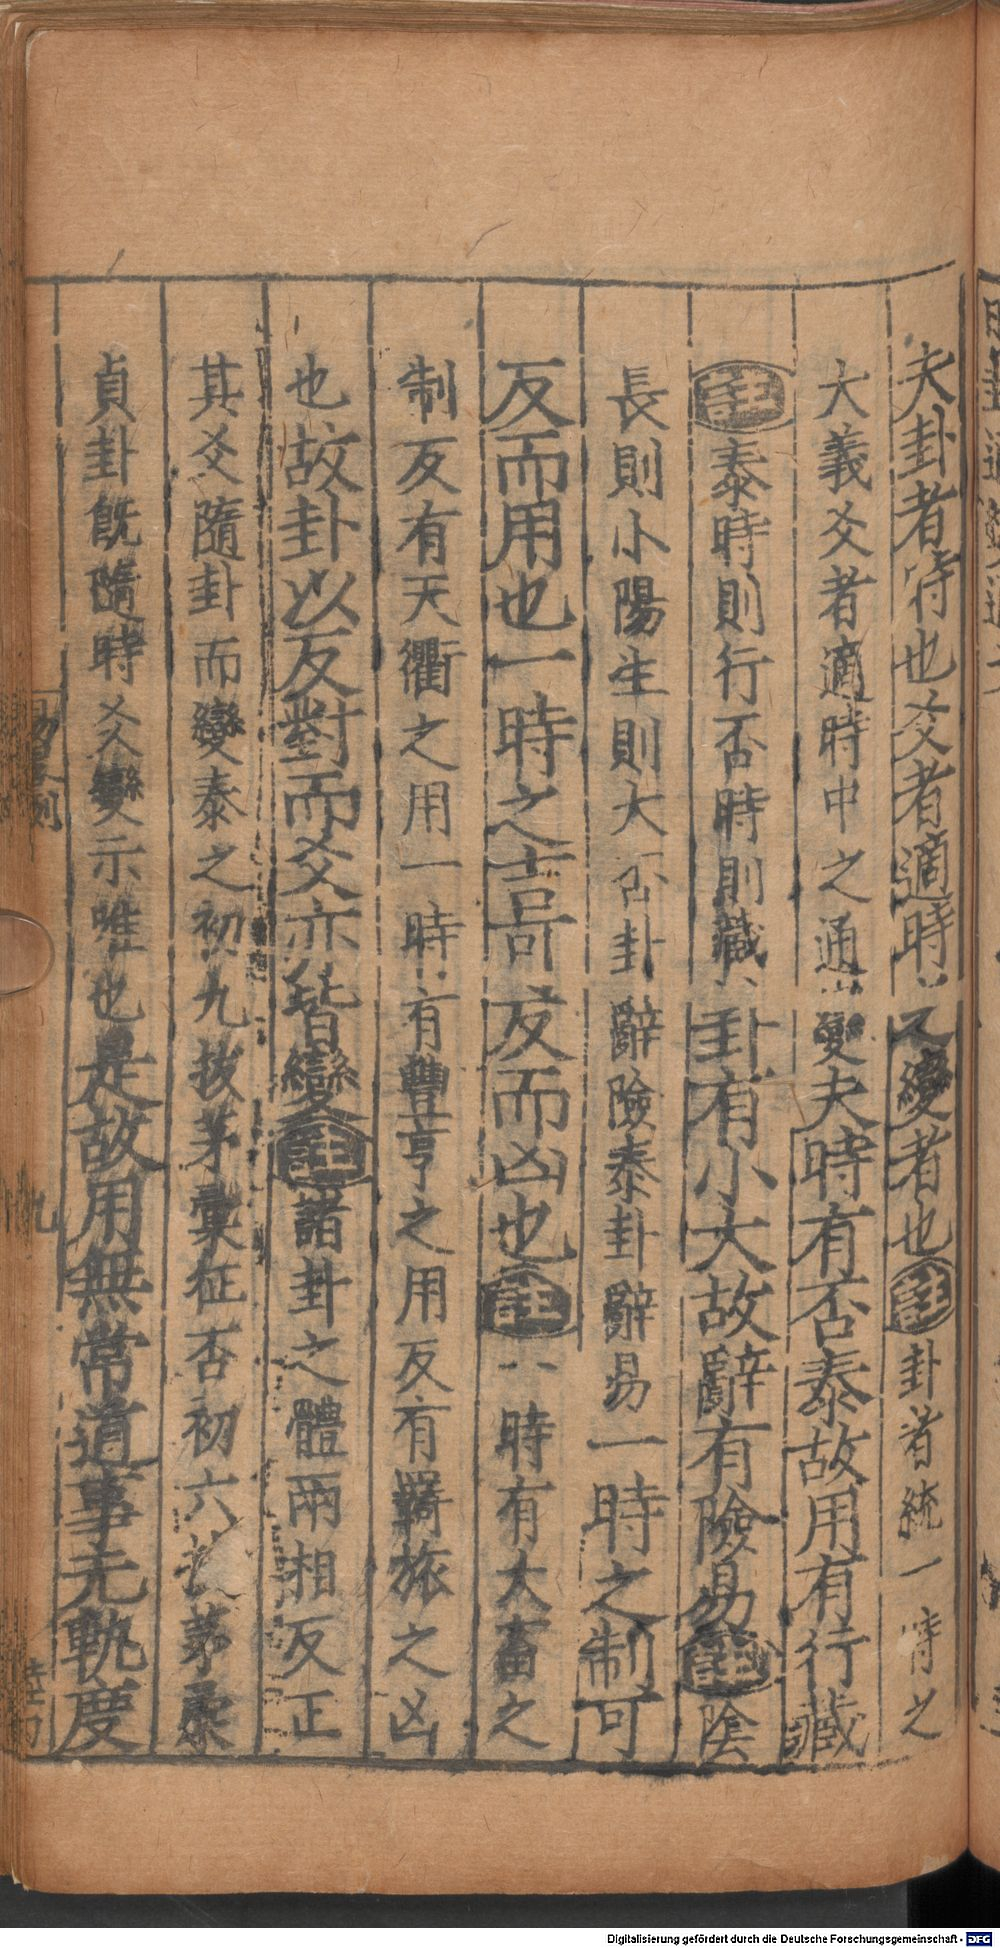 夫卦者時也爻者適時之變者也註卦者統一時之
大義爻者適時中之通變夫時有否泰故用有行藏
註泰時則行否時則藏卦有小大故辭有險易註陰
長則小陽生則大否卦辭險泰卦辭易一時之制可
反而用也一時之吉可反而凶也註一時有大畜之
制反有天衢之用一時有豐亨之用反有羈旅之凶
也故卦以反對而爻亦皆變註諸卦之體兩相反正
其爻隨卦而變泰之初九拔茅彙征否初六拔茅彙
貞卦旣隨時爻變示唯也是故用無常道事无軌度
九
Digitalisierung gefördert durch die Deutsche Forschungsgemeinschaft - DFG